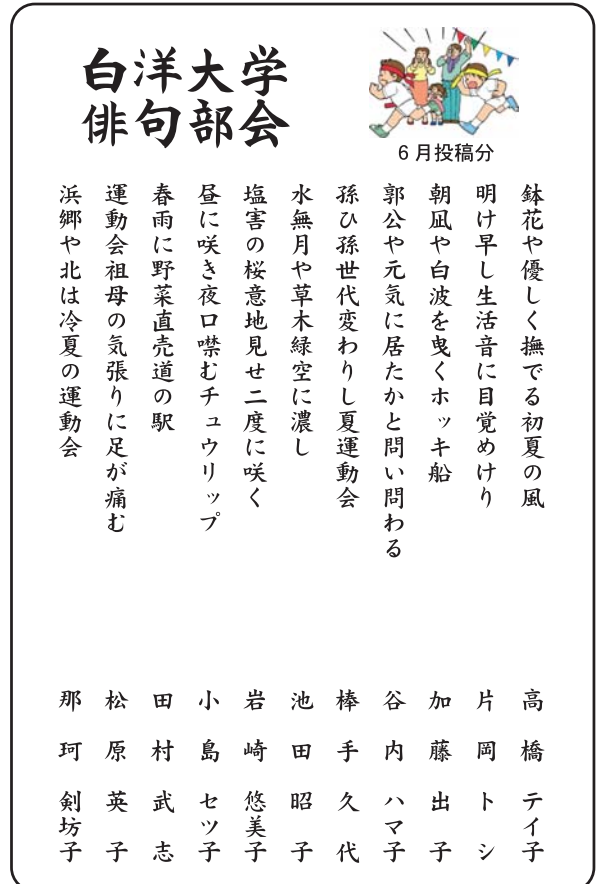 白洋大学
俳句部会
6月投稿分
鉢花や優しく撫でる初夏の風 高橋 テイ子
明け早し生活音に目覚めけり 片岡 トシ
朝凪や白波を曳くホッキ船 加藤 出子
郭公や元気に居たかと問い問わる 谷内 ハマ子
孫ひ孫世代変わりし夏運動会 棒手 久代
水無月や草木緑空に濃し 池田 昭子
塩害の桜意地見せ二度に咲く 岩崎 悠美子
昼に咲き夜口噤むチュウリップ 小島 セツ子
春雨に野菜直売道の駅 田村 武志
運動会祖母の気張りに足が痛む 松原 英子
浜郷や北は冷夏の運動会 那珂 剣坊子